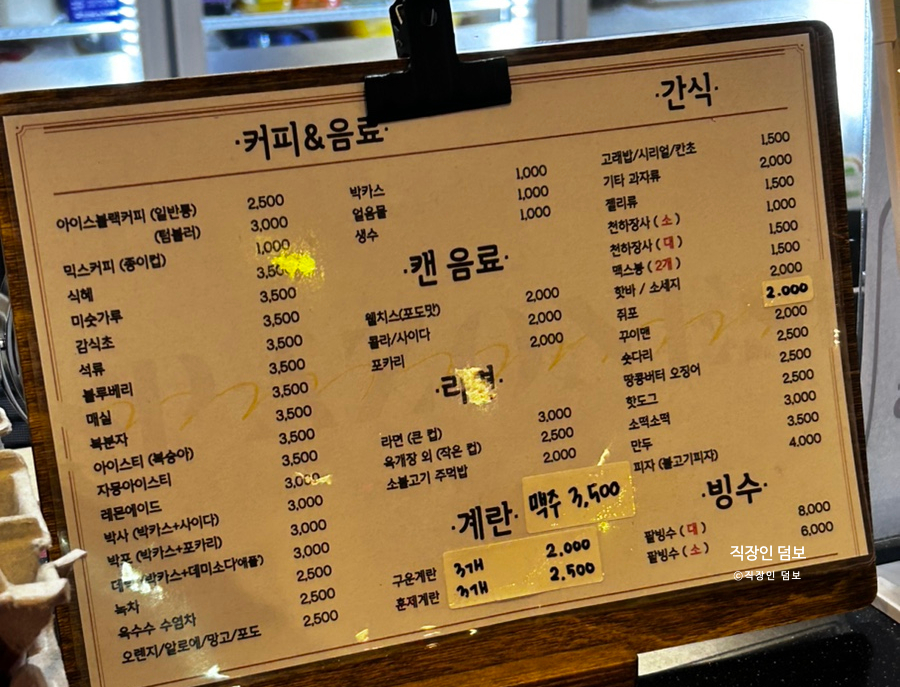 ·커피&음료·
아이스블랙커피 (일반통) 2,500
(텀블러) 3,000
믹스커피 (종이컵) 1,000
식혜 3,500
미숫가루 3,500
감식초 3,500
석류 3,500
블루베리 3,500
매실 3,500
복분자 3,500
아이스티 (복숭아) 3,500
자몽아이스티 3,500
레몬에이드 3,000
박사 (박카스+사이다) 3,000
박포 (박카스+포카리) 3,000
(박카스+데미소다애플) 3,000
녹차 2,500
옥수수 수염차 2,500
오렌지/알로에/망고/포도 2,500
박카스 1,000
얼음물 1,000
생수 1,000
·캔 음료·
웰치스(포도맛) 2,000
콜라/사이다 2,000
포카리 2,000
라면 (큰 컵) 3,000
육개장 외 (작은 컵) 2,500
소불고기 주먹밥 2,000
맥주 3,500
·계란·
구운계란 3개 2.000
훈제계란 3개 2.500
·간식·
고래밥/시리얼/칸초 1,500
기타 과자류 2,000
젤리류 1,500
천하장사 ( 소 ) 1,000
천하장사 ( 대 ) 1,500
맥스봉 ( 2개 ) 1,500
핫바 / 소세지 2,000
쥐포 2.000
꾸이맨 2,000
숏다리 2,500
땅콩버터 오징어 2,500
핫도그 2,500
소떡소떡 3,000
만두 3,500
피자 (불고기피자) 4,000
·빙수·
팥빙수 ( 대 ) 8,000
팥빙수 ( 소 ) 6,000
직장인 덤보
©직장인 덤보